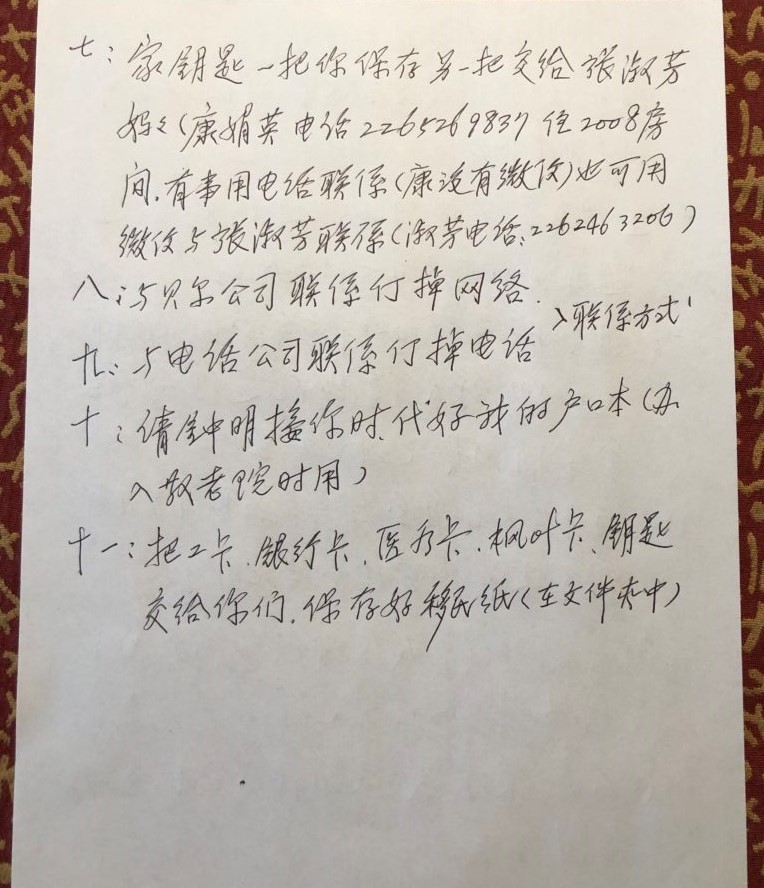 七：家钥匙一把你保存另一把交给张淑芳
妈妈（康娟英电话2265269837住2008房
间，有事用电话联係（康没有微信）也可用
微信与张淑芳联係（淑芳电话：2262463206）
八：与贝尔公司联係付掉网络．
>联係方式'
九：与电话公司联係付掉电话
十：请钟明接你时代好我的户口本（办
入敬老院时用）
十一：把工卡、银行卡、医疗卡、枫叶卡、钥匙
交给你们．保存好移民纸（在文件夹中）